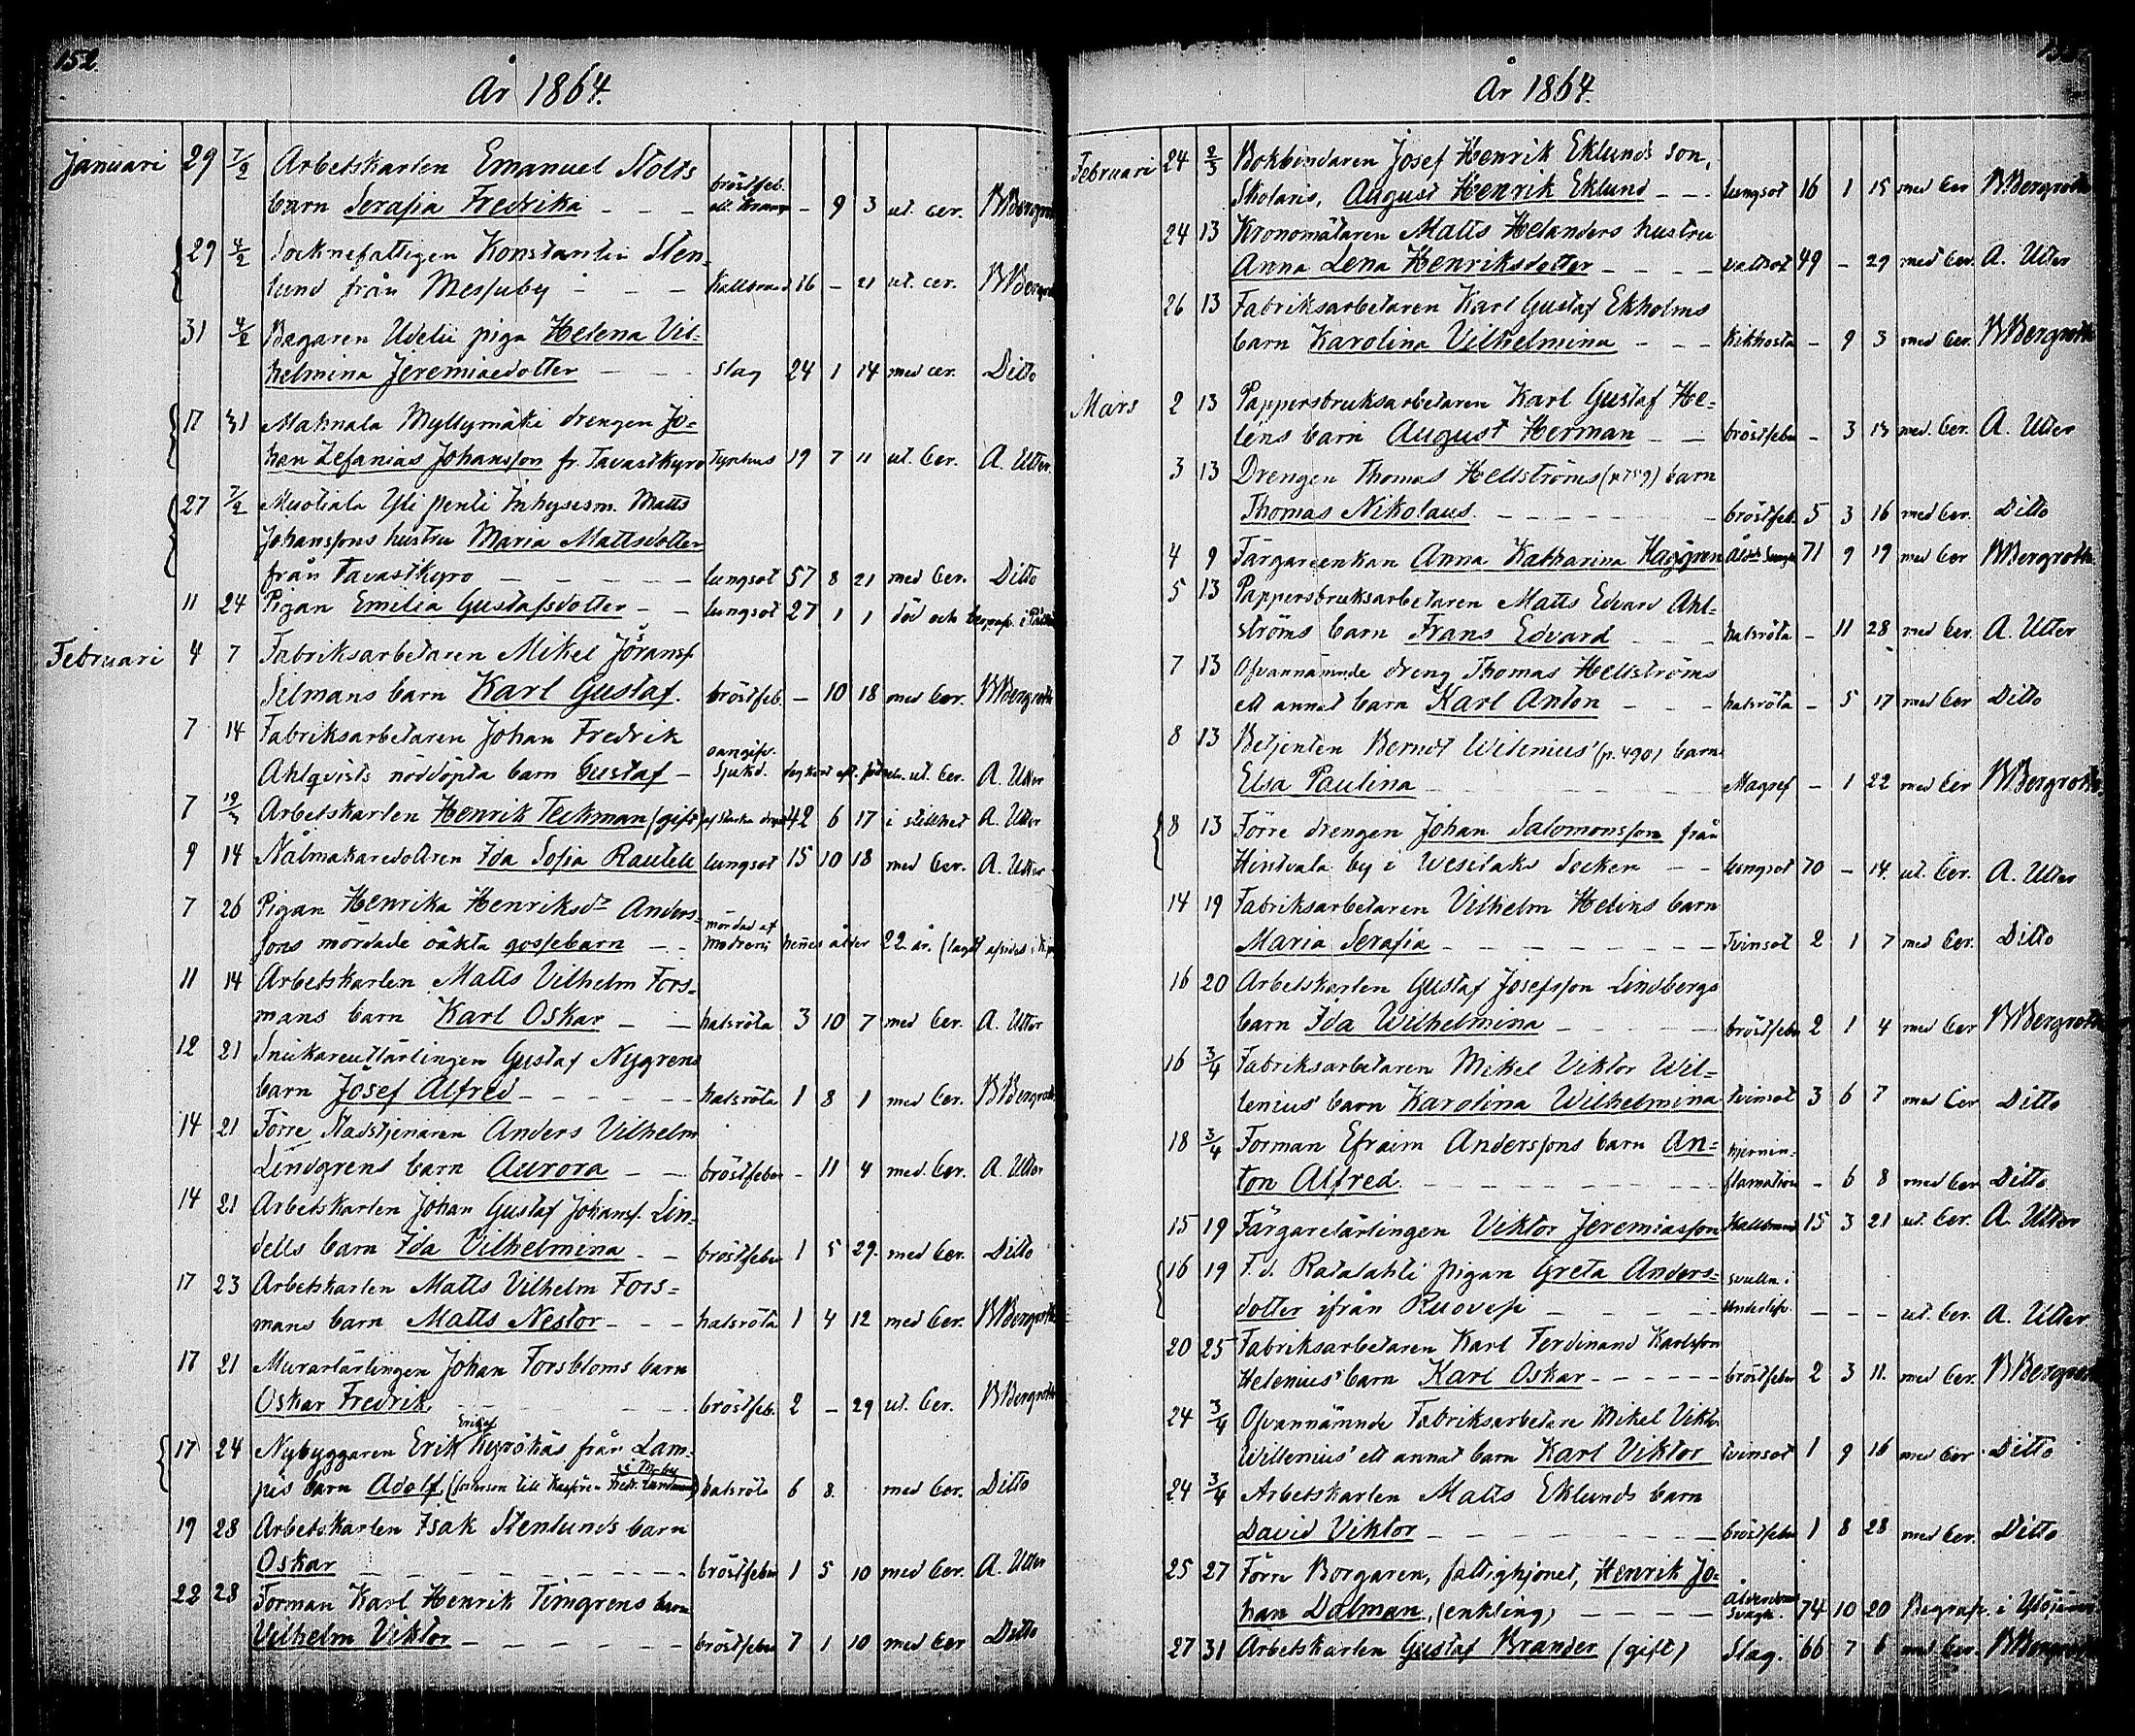 152.
År 1864.
Januari 29 7/2 Arbetskarlen Emanuel Stolts
barn Serafia Fredrika - - - bröstfeb. ell. kramp - 9 3 ut. Cer. BBergroth
29 4/2 Socknefattigen Konstantin Sten-
lund från Messuby - - - Kallbrand 16 - 21 ut. cer. BBergroth
31 4/2 Bagaren Udelii piga Helena Vil-
helmina Jeremiaedotter - - - slag 24 1 14 med cer. Ditto
17 31 Mahnala Myllymäki drengen Jo-
han Zefanias Johansson fr. Tavastkyro Typhus 19 7 11 ut. Cer. A. Utter.
27 7/2 Muotiala Yli penti Inhysesm. Matts
Johanssons hustru Maria Mattsdotter
från Tavastkyro - - - - - lungsot 57 8 21 med Cer. Ditto
11 24 Pigan Emilia Gustafsdotter - - lungsot 27 1 1 död och begraf. i
Februari 4 7 Fabriksarbetaren Mikel Göransf.
Silmans barn Karl Gustaf. bröstfeb. - 10 18 med Cer. BBergroth
7 14 Fabriksarbetaren Johan Fredrik
Ahlqvists nöddöpta barn Gustaf - oangifv. Sjukd. dog kort eft. födseln. ut. Cer. A. Utter
7 19/3 Arbetskarlen Henrik Teckman (gift) af starka drycker 42 6 17 i stillhet A. Utter
9 14 Nålmakaredottren Ida Sofia Rautell lungsot 15 10 18 med Cer. A. Utter
7 26 Pigan Henrika Henriksdr Anders-
sons mördade oäkta gossebarn - - mördad af modren; hennes ålder 22 år. (lagdt afsides i
11 14 Arbetskarlen Matts Vilhelm Fors-
mans barn Karl Oskar - - halsröta 3 10 7 med Cer. A. Utter
12 21 Snickareutlärlingen Gustaf Nygrens
barn Josef Alfred - - - - - - halsröta 1 8 1 med Cer. BBergroth
14 21 Förre Stadstjenaren Anders Vilhelm
Lindgrens barn Aurora - - bröstfeber - 11 4 med. Cer. A. Utter
14 21 Arbetskarlen Johan Gustaf Johansf. Lin-
dells barn Ida Vilhelmina - - bröstfeber 1 5 29. med Cer. Ditto
17 23 Arbetskarlen Matts Vilhelm Fors-
mans barn Matts Nestor - - - halsröta 1 4 12 med Cer. BBergroth
17 21 Murarlärlingen Johan Forsbloms barn
Oskar Fredrik - - - - bröstfeb. 2 - 29 ut. Cer. BBergroth
17 24 Nybyggaren Erik Eriksf. Kyröskäs från Lam-
pis barn Adolf (fosterson till Fredr. Lundmans i M-by) halsröta 6 8. med Cer. Ditto
19 28 Arbetskarlen Isak Stenlunds barn
Oskar - - - - - - - - - bröstfeber 1 5 10 med Cer. A. Utter
22 28 Forman Karl Henrik Timgrens barn
Vilhelm Viktor - - - - - - bröstfeber 7 1 10 med Cer Ditto
År 1864.
Februari 24 2/3 Bokbindaren Josef Henrik Eklunds son,
Skolaris, August Henrik Eklund - - - lungsot 16 1 15 med Cer BBergroth
24 13 Kronomätaren Matts Helanders hustru
Anna Lena Henriksdotter - - - - vattsot 49 - 29 med Cer. A. Utter
26 13 Fabriksarbetaren Karl Gustaf Ekholms
barn Karolina Vilhelmina - - - Kikhosta - 9 3 med Cer. BBergroth
Mars 2 13 Pappersbruksarbetaren Karl Gustaf He-
léns barn August Herman - - bröstfeber - 3 13 med. Cer. A. Utter
3 13 Drengen Thomas Hellströms (p. 759) barn
Thomas Nikolaus. - - - - - - - - bröstfeb. 5 3 16 med Cer. Ditto
4 9 Färgareenkan Anna Katharina Haggren Åld. Svagh. 71 9 19 med Cer BBergroth
5 13 Pappersbruksarbetaren Matts Edvard Ahl-
ströms barn Frans Edvard - - - halsröta - 11 28 med Cer. A. Utter
7 13 Ofvannämnde dreng Thomas Hellströms
ett annat barn Karl Anton - - - halsröta - 5 17 med Cer Ditto
8 13 Betjenten Berndt Wilenius' (p. 490) barn
Elsa Paulina - - - - - - - - Magref - 1 22 med Cer BBergroth.
8 13 Förre drengen Johan Salomonsson från
Hintvala by i Wesilaks Socken - - lungsot 70 - 14. ut. Cer. A. Utter
14 19 Fabriksarbetaren Vilhelm Helins barn
Maria Serafia - - - - - - - - - Tvinsot 2 1 7 med Cer. Ditto
16 20 Arbetskarlen Gustaf Josefsson Lindbergs
barn Ida Wilhelmina - - - - - bröstfeber 2 1 4 med Cer BBergroth
16 3/4 Fabriksarbetaren Mikel Viktor Wil-
lenius' barn Karolina Wilhelmina tvinsot 3 6 7 med Cer Ditto
18 3/4 Forman Efraim Anderssons barn An-
ton Alfred. - - - - - - - - hjernin-flamation - 6 8 med Cer Ditto
15 19 Färgarelärlingen Viktor Jeremiasson Kallbrand 15 3 21 ut. Cer. A. Utter
16 19 F. d. Ratalahti pigan Greta Anders-
dotter ifrån Ruovesi - - - - - svulln. i Underlif. - - - ut. Cer. A. Utter
20 25 Fabriksarbetaren Karl Ferdinand Karlsson
Helenius' barn Karl Oskar - - - - - - bröstfeber 2 3 11. med Cer. BBergroth
24 3/4 Ofvannämnde Fabriksarbetare Mikel Viktor
Willenius' ett annat barn Karl Viktor tvinsot 1 9 16 med Cer Ditto
24 3/4 Arbetskarlen Matts Eklunds barn
David Viktor - - - - - - - - bröstfeber 1 8 28 med Cer. Ditto
25 27 Förre Borgaren, fattighjonet, Henrik Jo-
han Dalman, (enkling) - - - - Ålderdoms Svagh. 74 10 20 Begrafv. i Ylöjärvi
27 31 Arbetskarlen Gustaf Brander (gift) Slag. 66 7 6 med Cer. BBergroth